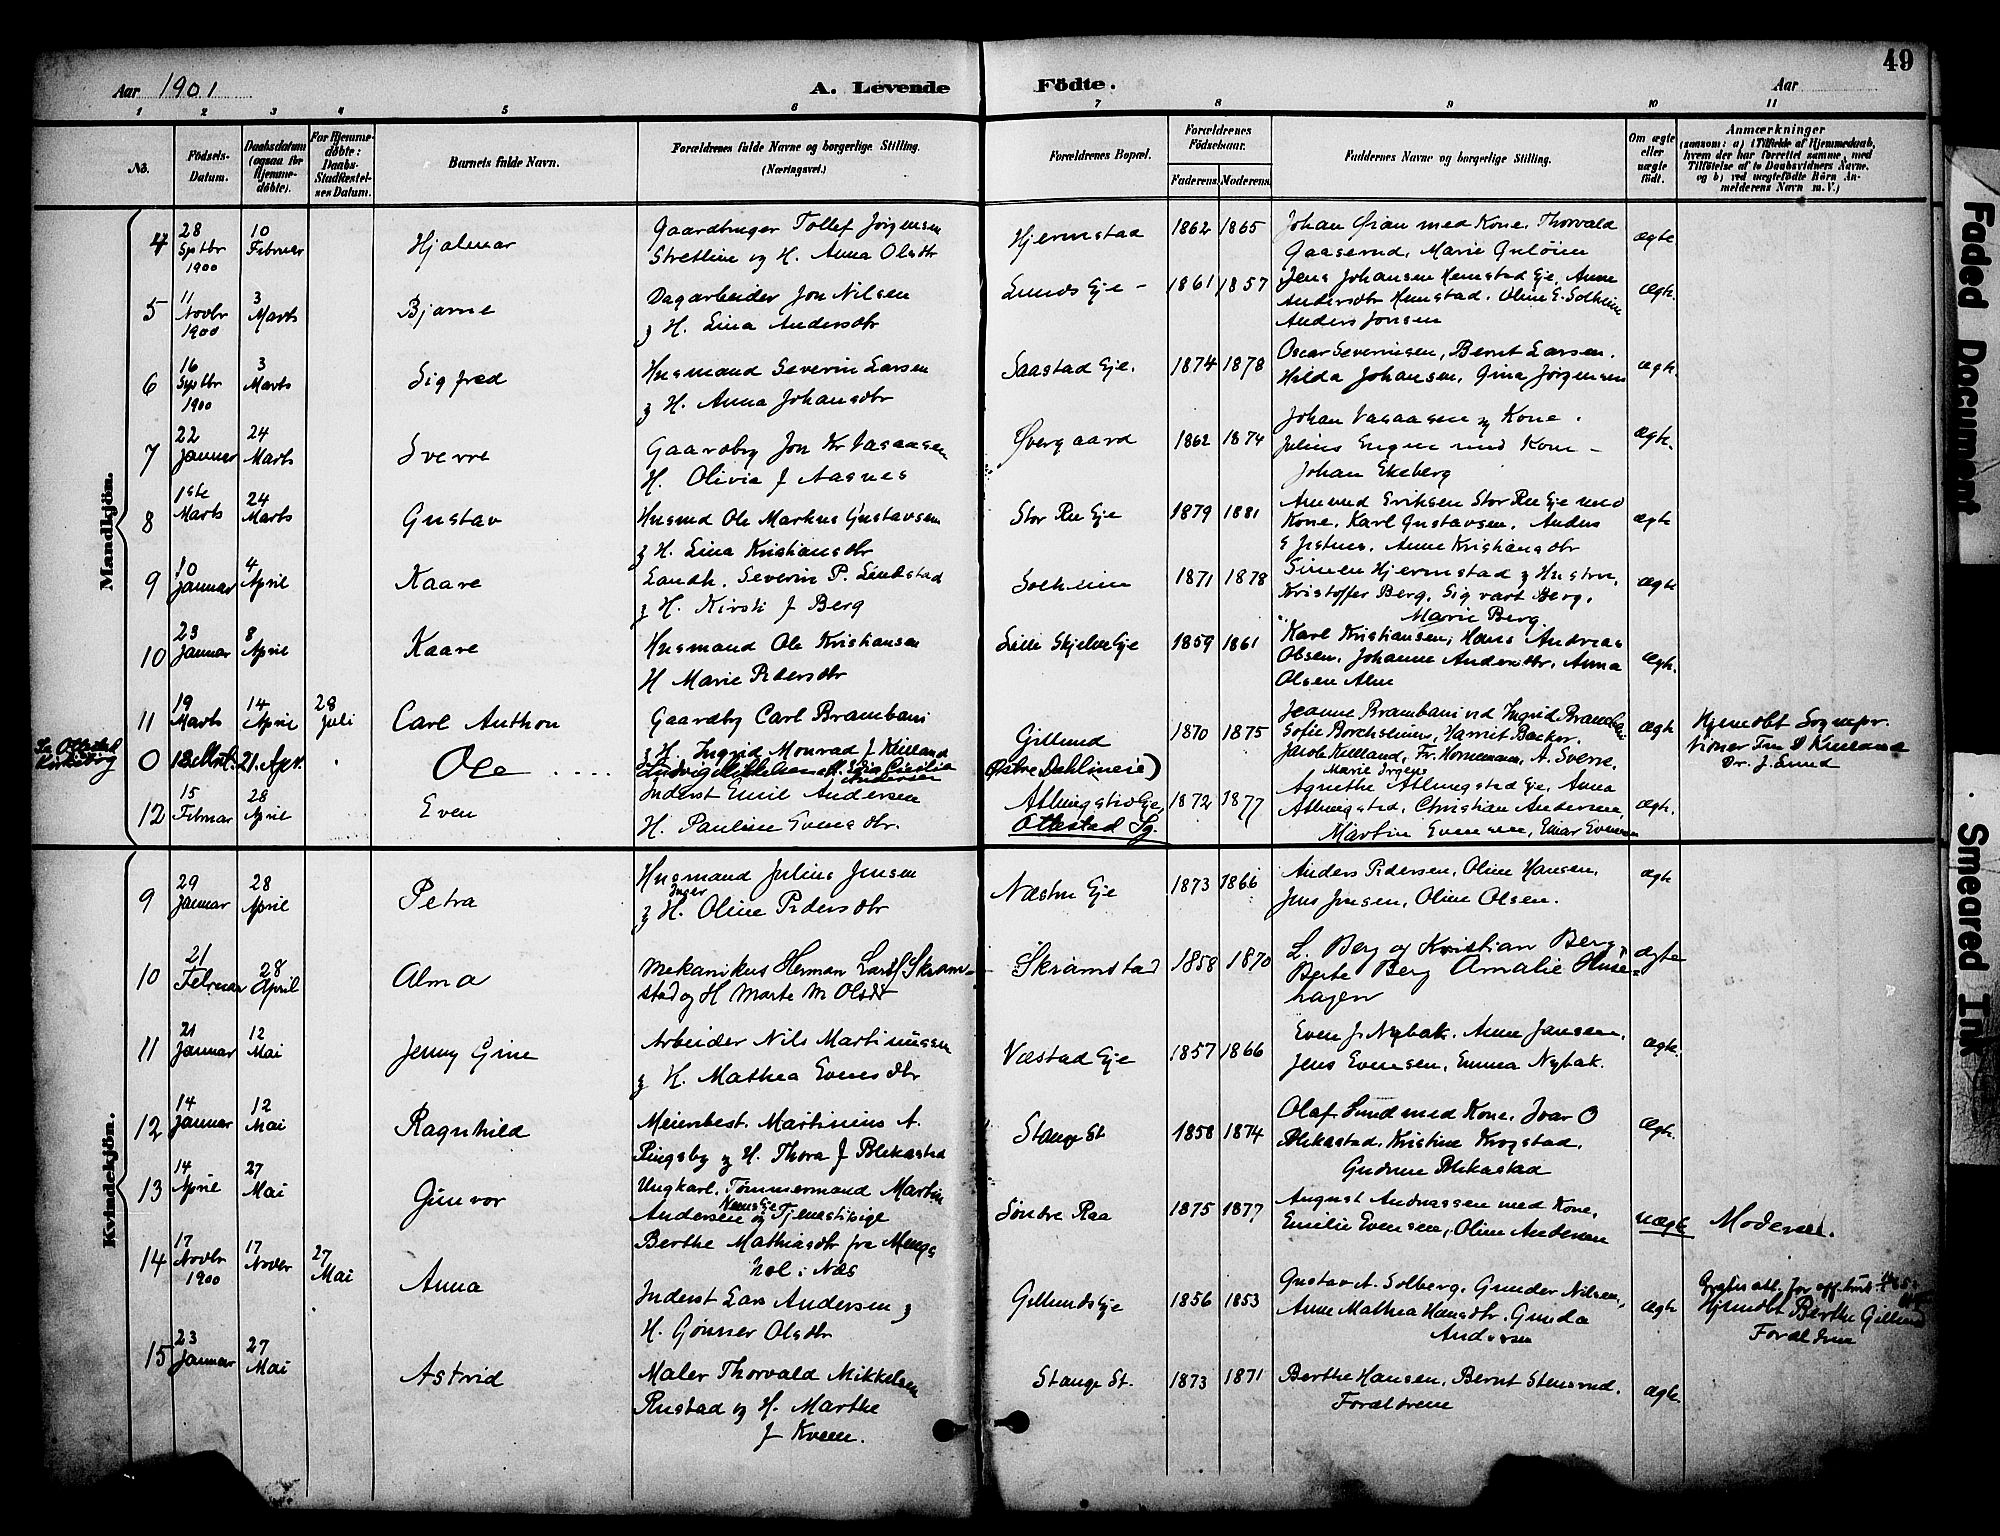 49
Aar 1901 A. Levende Födte. Aar
1 2 3 4 5 6 7 8 9 10 11
No.
Födsels-Datum.
Daabsdatum (ogsaa for Hjemmedöbte).
For Hjemmedöbte: Daabs-Stadfæstelses Datum.
Barnets fulde Navn.
Forældrenes fulde Navne og borgerlige Stilling. (Næringsvei.)
Forældrenes Bopæl.
Forældrenes Födselsaar.
Faderens. Moderens.
Faddernes Navne og borgerlige Stilling.
Om ægte eller uægte födt.
Anmærkninger (saasom: a) i Tilfælde af Hjemmedaab, hvem der har forrettet samme, med Tilföielse af to Daabsvidners Navne, og b) ved uægtefödte Börn Anmelderens Navn m. V.)
Mandkjön.
4 28 Septbr 1900 10 Februar Hjalmar Gaardbruger Tollef Jörgensen
og H. Anna Olsdtr Hjermstad 1862 1865 Johan med Kone, Thorvald
Gaaserud, Marie ægte
5 11 Novbr 1900 3 Marts Bjarne Dagarbeider Jon Nilsen
og H. Lina Andersdtr Lunds Eje 1861 1857 Jens Johansen Hemstad Eje, Anne
Andersdtr Hemstad, Oline E. Solheim
Anders Jonsen ægte
6 16 Septbr 1900 3 Marts Sigfred Husmand Severin Larsen
og H. Anna Johansdtr Saastad Eje. 1874 1878 Oscar Severinsen, Bernt Larsen.
Hilda Johansen, Gina Jörgensen ægte
7 22 Januar 24 Marts Sverre Gaardbrg Jon Kr Vasaasen
H. Olivia f Aasnes Øvergaard 1862 1874 Johan Vasaasen og Kone.
Julius Engen med Kone
Johan Ekeberg ægte
8 1ste Marts 24 Marts Gustav Husmd Ole Markus Gustavsen
og H. Lina Kristiansdtr Stor Ree Eje 1879 1881 Amund Eriksen Stor Ree Eje med
Kone, Karl Gustavsen, Anders
Anne Kristiansdtr ægte
9 10 Januar 4 April Kaare Landh. Severin P. Lindstad
og H. Kirsti f Berg Solheim 1871 1878 Simen Hjermstad og Hustru,
Kristoffer Berg, Sigvart Berg,
Marie Berg ægte
10 23 Januar 8 April Kaare Husmand Ole Kristiansen
H Marie Pedersdtr Lille Skjelve Eje 1859 1861 Karl Kristiansen, Hans Andreas
Olsen, Johanne Andersdtr, Anna
Olsen Alm ægte
11 19 Marts 14 April 28 Juli Carl Anthon Gaardbg Carl Brambani
og H. Ingrid Monrad f Kielland Gillund 1870 1875 Jeanne Brambani ved Ingrid Brambani
Sofie Borchsenius, Harriet Backer,
Jacob Kielland, Fr. Hornemann, A. Sverre. ægte Hjemdøbt Sognepr.
Kielland
Dr. J. Lund
Se Ottestad Kirkebog 0 21. Apr. Ole Ludvig (Østre Dahlineie)
12 15 Februar 28 April Even Inderst Emil Andersen
H. Pauline Evensdtr. Ottestad Sg. 1872 1877 Agnethe Eje, Anna
Christian Andersen,
Martin Evensen, Einar Evensen ægte
Kvindekjön.
9 29 Januar 28 April Petra Husmand Julius Jensen
og H. Inger Oline Pedersdtr Næstu Eje 1873 1866 Anders Pedersen, Oline Hansen,
Jens Jensen, Oline Olsen. ægte
10 21 Februar 28 April Alma Mekanikus Herman Skramstad
og H Marte M Olsdt Skramstad 1858 1870 L. Berg og Kristian Berg,
Berte Berg Amalie Husehagen ægte
11 21 Januar 12 Mai Jenny Gine Arbeider Nils Martinussen
og H. Mathea Evensdtr Væstad Eje 1857 1866 Even J. Nybak, Anne Jansen,
Jens Evensen, Emma Nybak. ægte
12 14 Januar 12 Mai Ragnhild Meieribest. Martinius A.
Ringsby og H. Thora f Blekastad Stange St 1858 1874 Olaf Lund med Kone, Ivar O
Blekastad, Kristine Krogstad,
Gudrun Blekastad ægte
13 14 April 27 Mai Gunvor Ungkarl, Tømmermand Martin
Andersen og Tjenestpige
Berthe Mathiasdtr fra
i Næs Søndre Raa 1875 1877 August Andreassen med Kone,
Emilie Evensen, Oline Andersen uægte Moderen.
14 17 Novbr 1900 17 Novbr 27 Mai Anna Inderst Lars Andersen og
H. Gønner Olsdtr Gillunds Eje 1856 1853 Gustav A. Solberg, Gunder Nilsen,
Anne Mathea Hansdtr, Gunda
Andersen ægte Gratis att. for off. brug
Hjemdbt Berthe Gillund
Forældrene
15 23 Januar 27 Mai Astrid Maler Thorvald Mikkelsen
Rustad og H. Marthe
f Kveen. Stange St. 1873 1871 Berthe Hansen, Bernt Stensrud.
Forældrene ægte
Faded Document
Smeared Ink